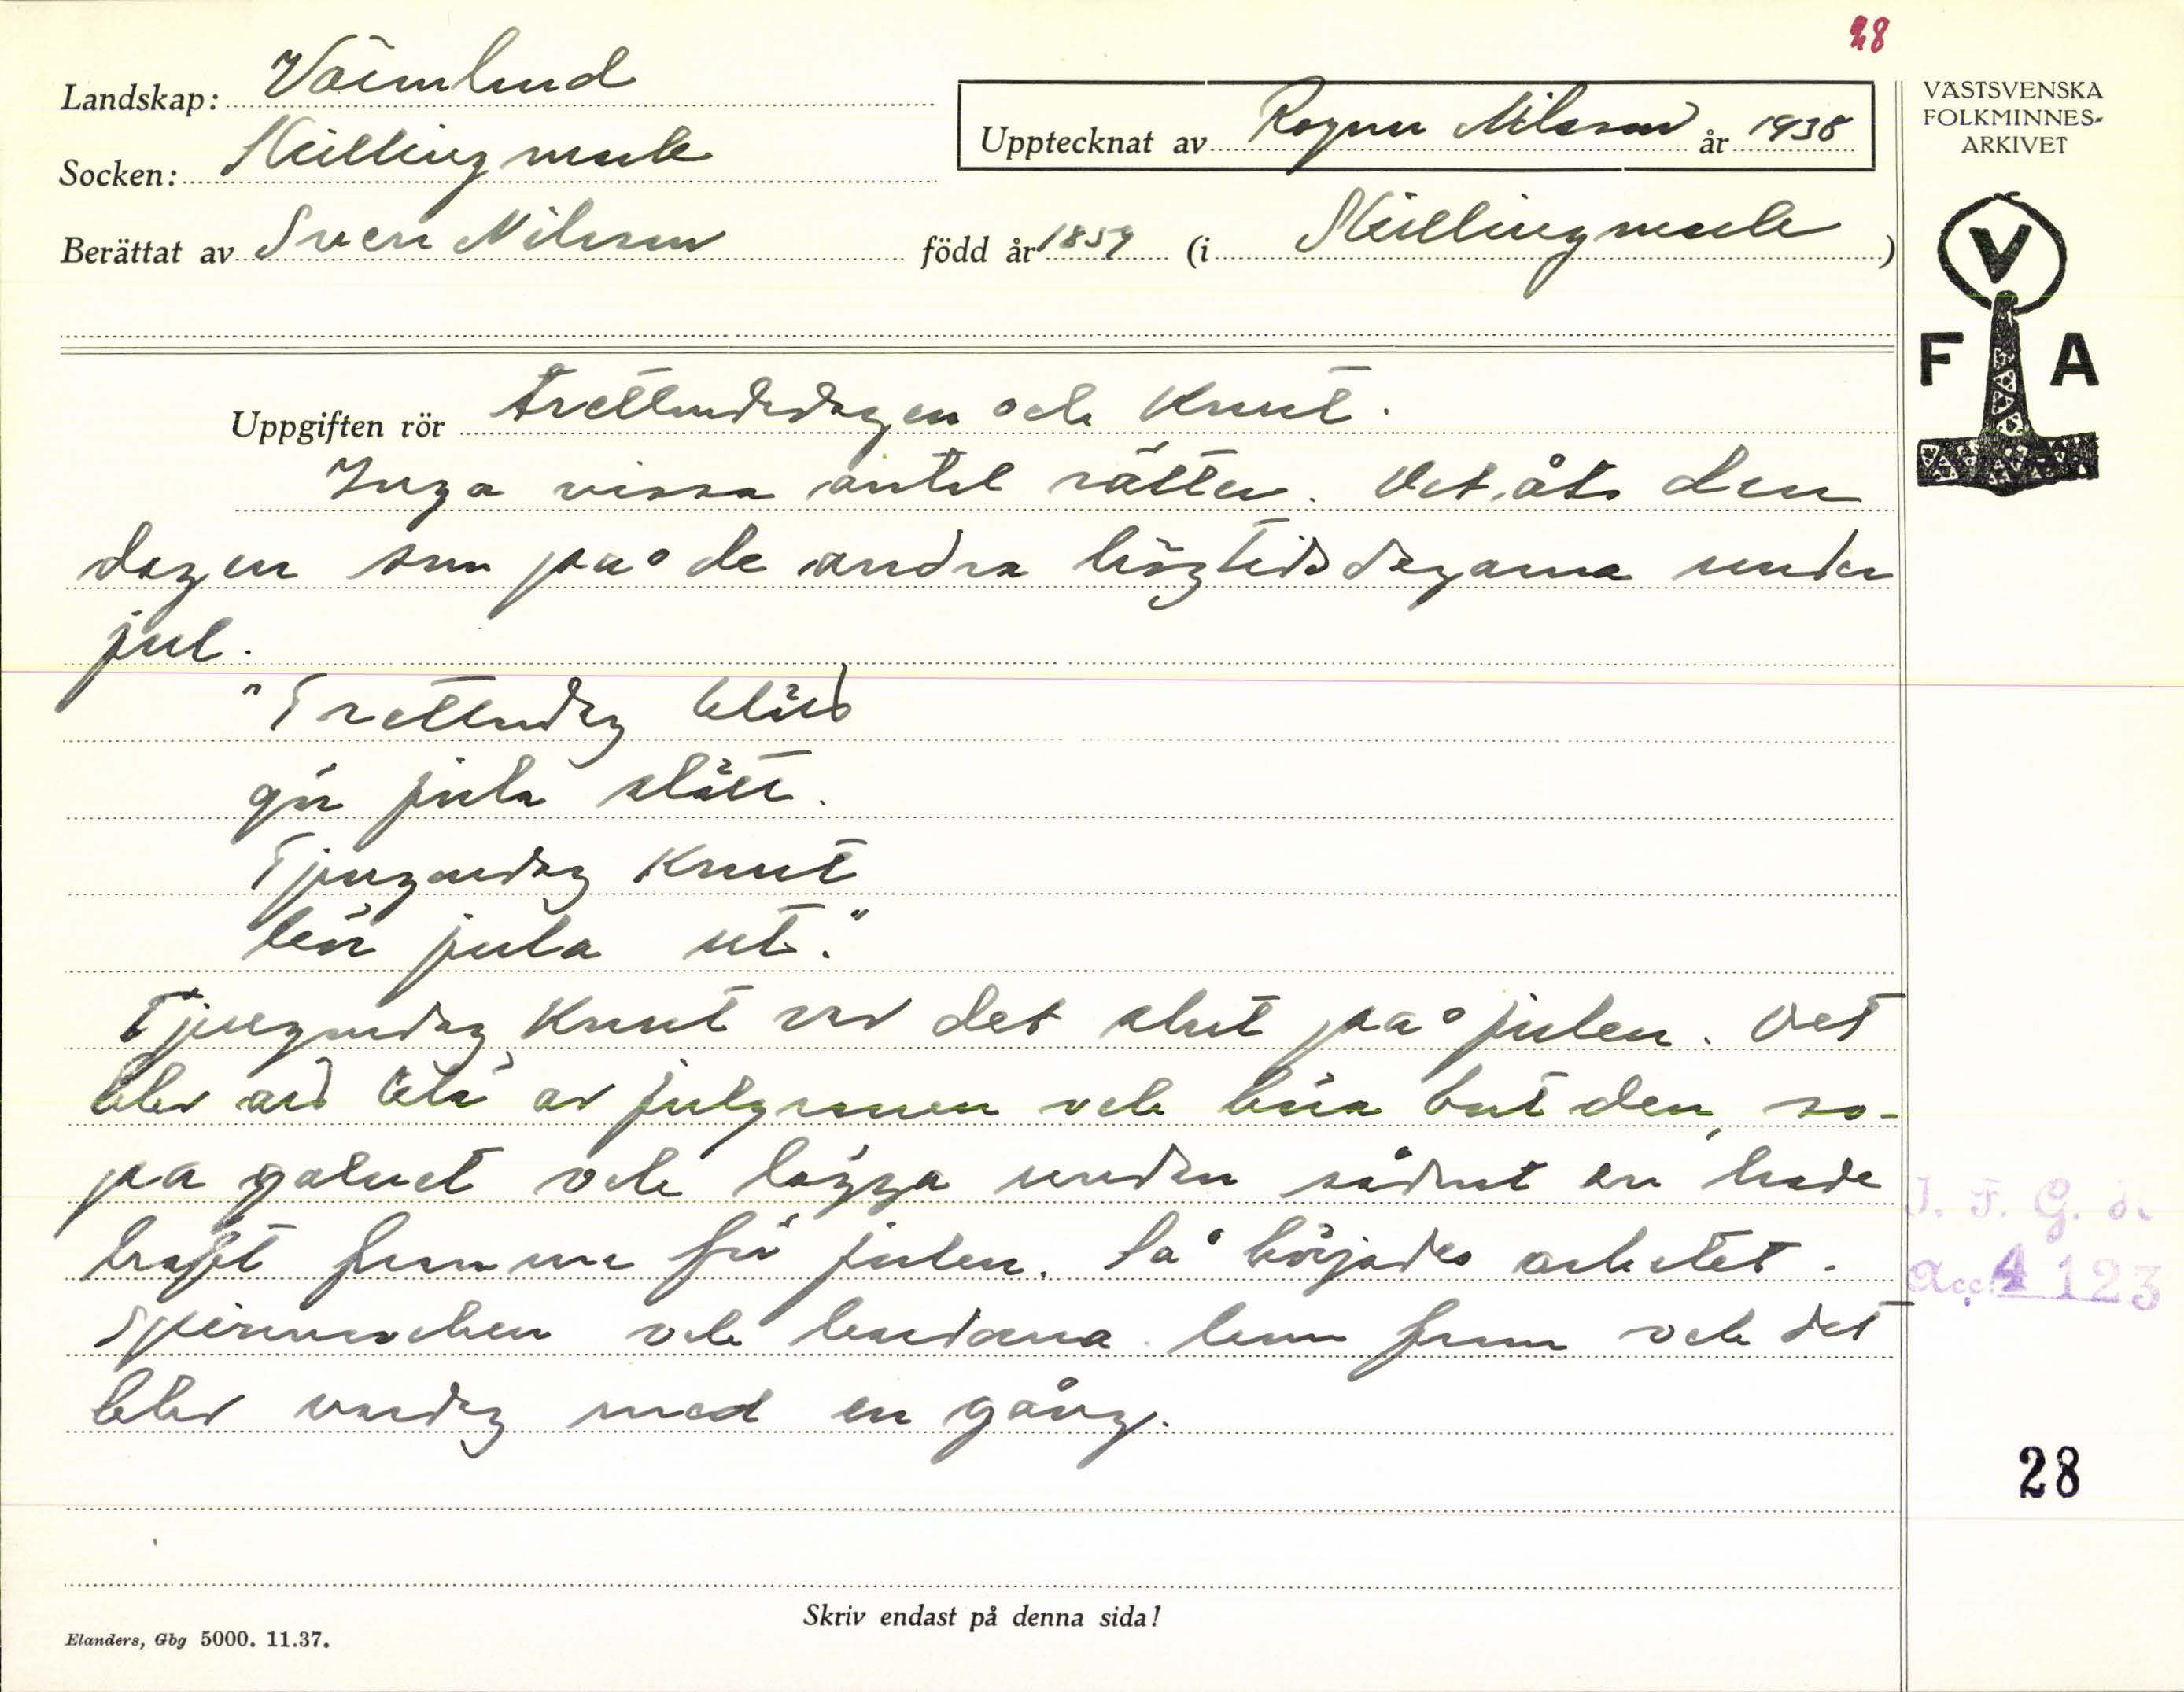 28
Landskap: Värmland
Socken: Skillingmark
Upptecknat av Ragnar Nilsson år 1938
Berättat av Sven Nilsson född år 1859 (i Skillingmark)
VÄSTSVENSKA
FOLKMINNES-
ARKIVET
V
F A
Uppgiften rör Trettondedagen och Knut.
Inga vissa antal rätter. Det åts den
dagen som på de andra högtidsdagarna under
jul.
"Trettondag
gör jula slätt.
Tjugondag Knut
kör jula ut."
Tjugondag Knut var det slut på julen. Det
blev av julgranen och bära ut den, so-
pa golvet och lägga undan sådant en hade
haft framme för julen. Så börjades arbetet.
Spinnrocken och kardorna kom fram och det
blev vardag med en gång.
I. F. G. H.
Acc. 4123
28
Skriv endast på denna sida!
Elanders, Gbg 5000. 11.37.